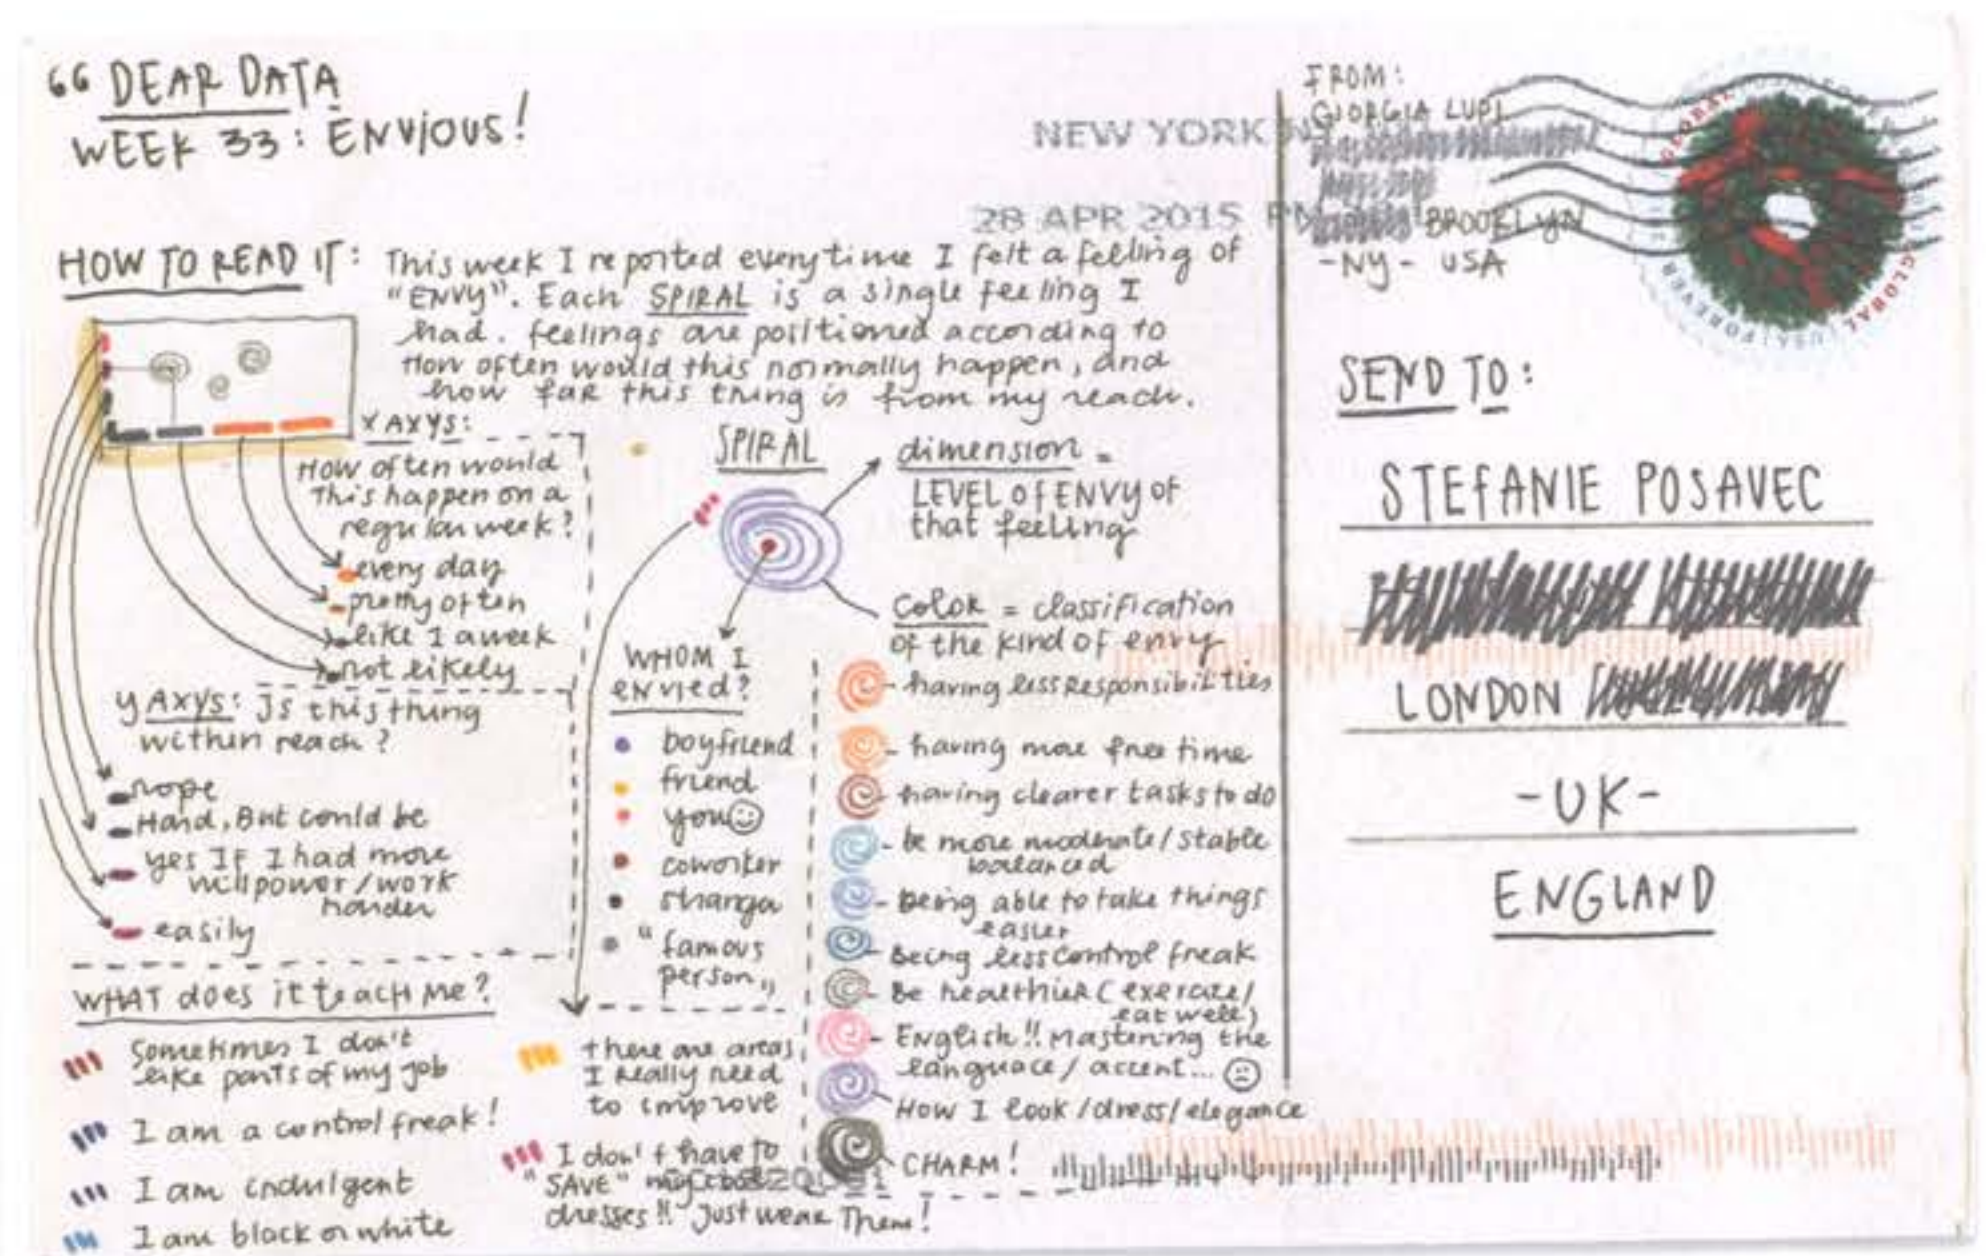 66 DEAR DATA
WEEK 33: ENVIOUS!
NEW YORK NY
28 APR 2015 PM
HOW TO READ IT:
This week I reported everytime I felt a felling of
"ENVY". Each SPIRAL is a single feeling I
had. feelings are positioned according to
How often would this normally happen, and
how far this thing is from my reach.
X AXYS:
How often would
This happen on a
regular week?
every day
pretty often
like 1 a week
not likely
y AXYS: Is this thing
within reach?
nope
Hard, But could be
yes If I had more
willpower/work
harder
easily
SPIRAL
dimension =
LEVEL of ENVY of
that feeling
Color = classification
of the kind of envy
WHOM I
envied?
boyfriend
friend
you
coworker
stranger
"famous
person"
having less Responsibilities
having more free time
having clearer tasks to do
be more moderate/stable
balanced
being able to take things
easier
Being less control freak
Be healthier (exercise/
eat well)
English!! Mastering the
language/accent...
How I look/dress/elegance
CHARM!
WHAT does it teach Me?
Sometimes I don't
like parts of my job
I am a control freak!
I am indulgent
I am black or white
there are areas
I really need
to improve
I don't have to
"SAVE" my
dresses!! Just wear Them!
FROM:
GIORGIA LUPI
BROOKLYN
-NY- USA
GLOBAL
GLOBAL
USA
FOREVER
SEND TO:
STEFANIE POSAVEC
LONDON
-UK-
ENGLAND